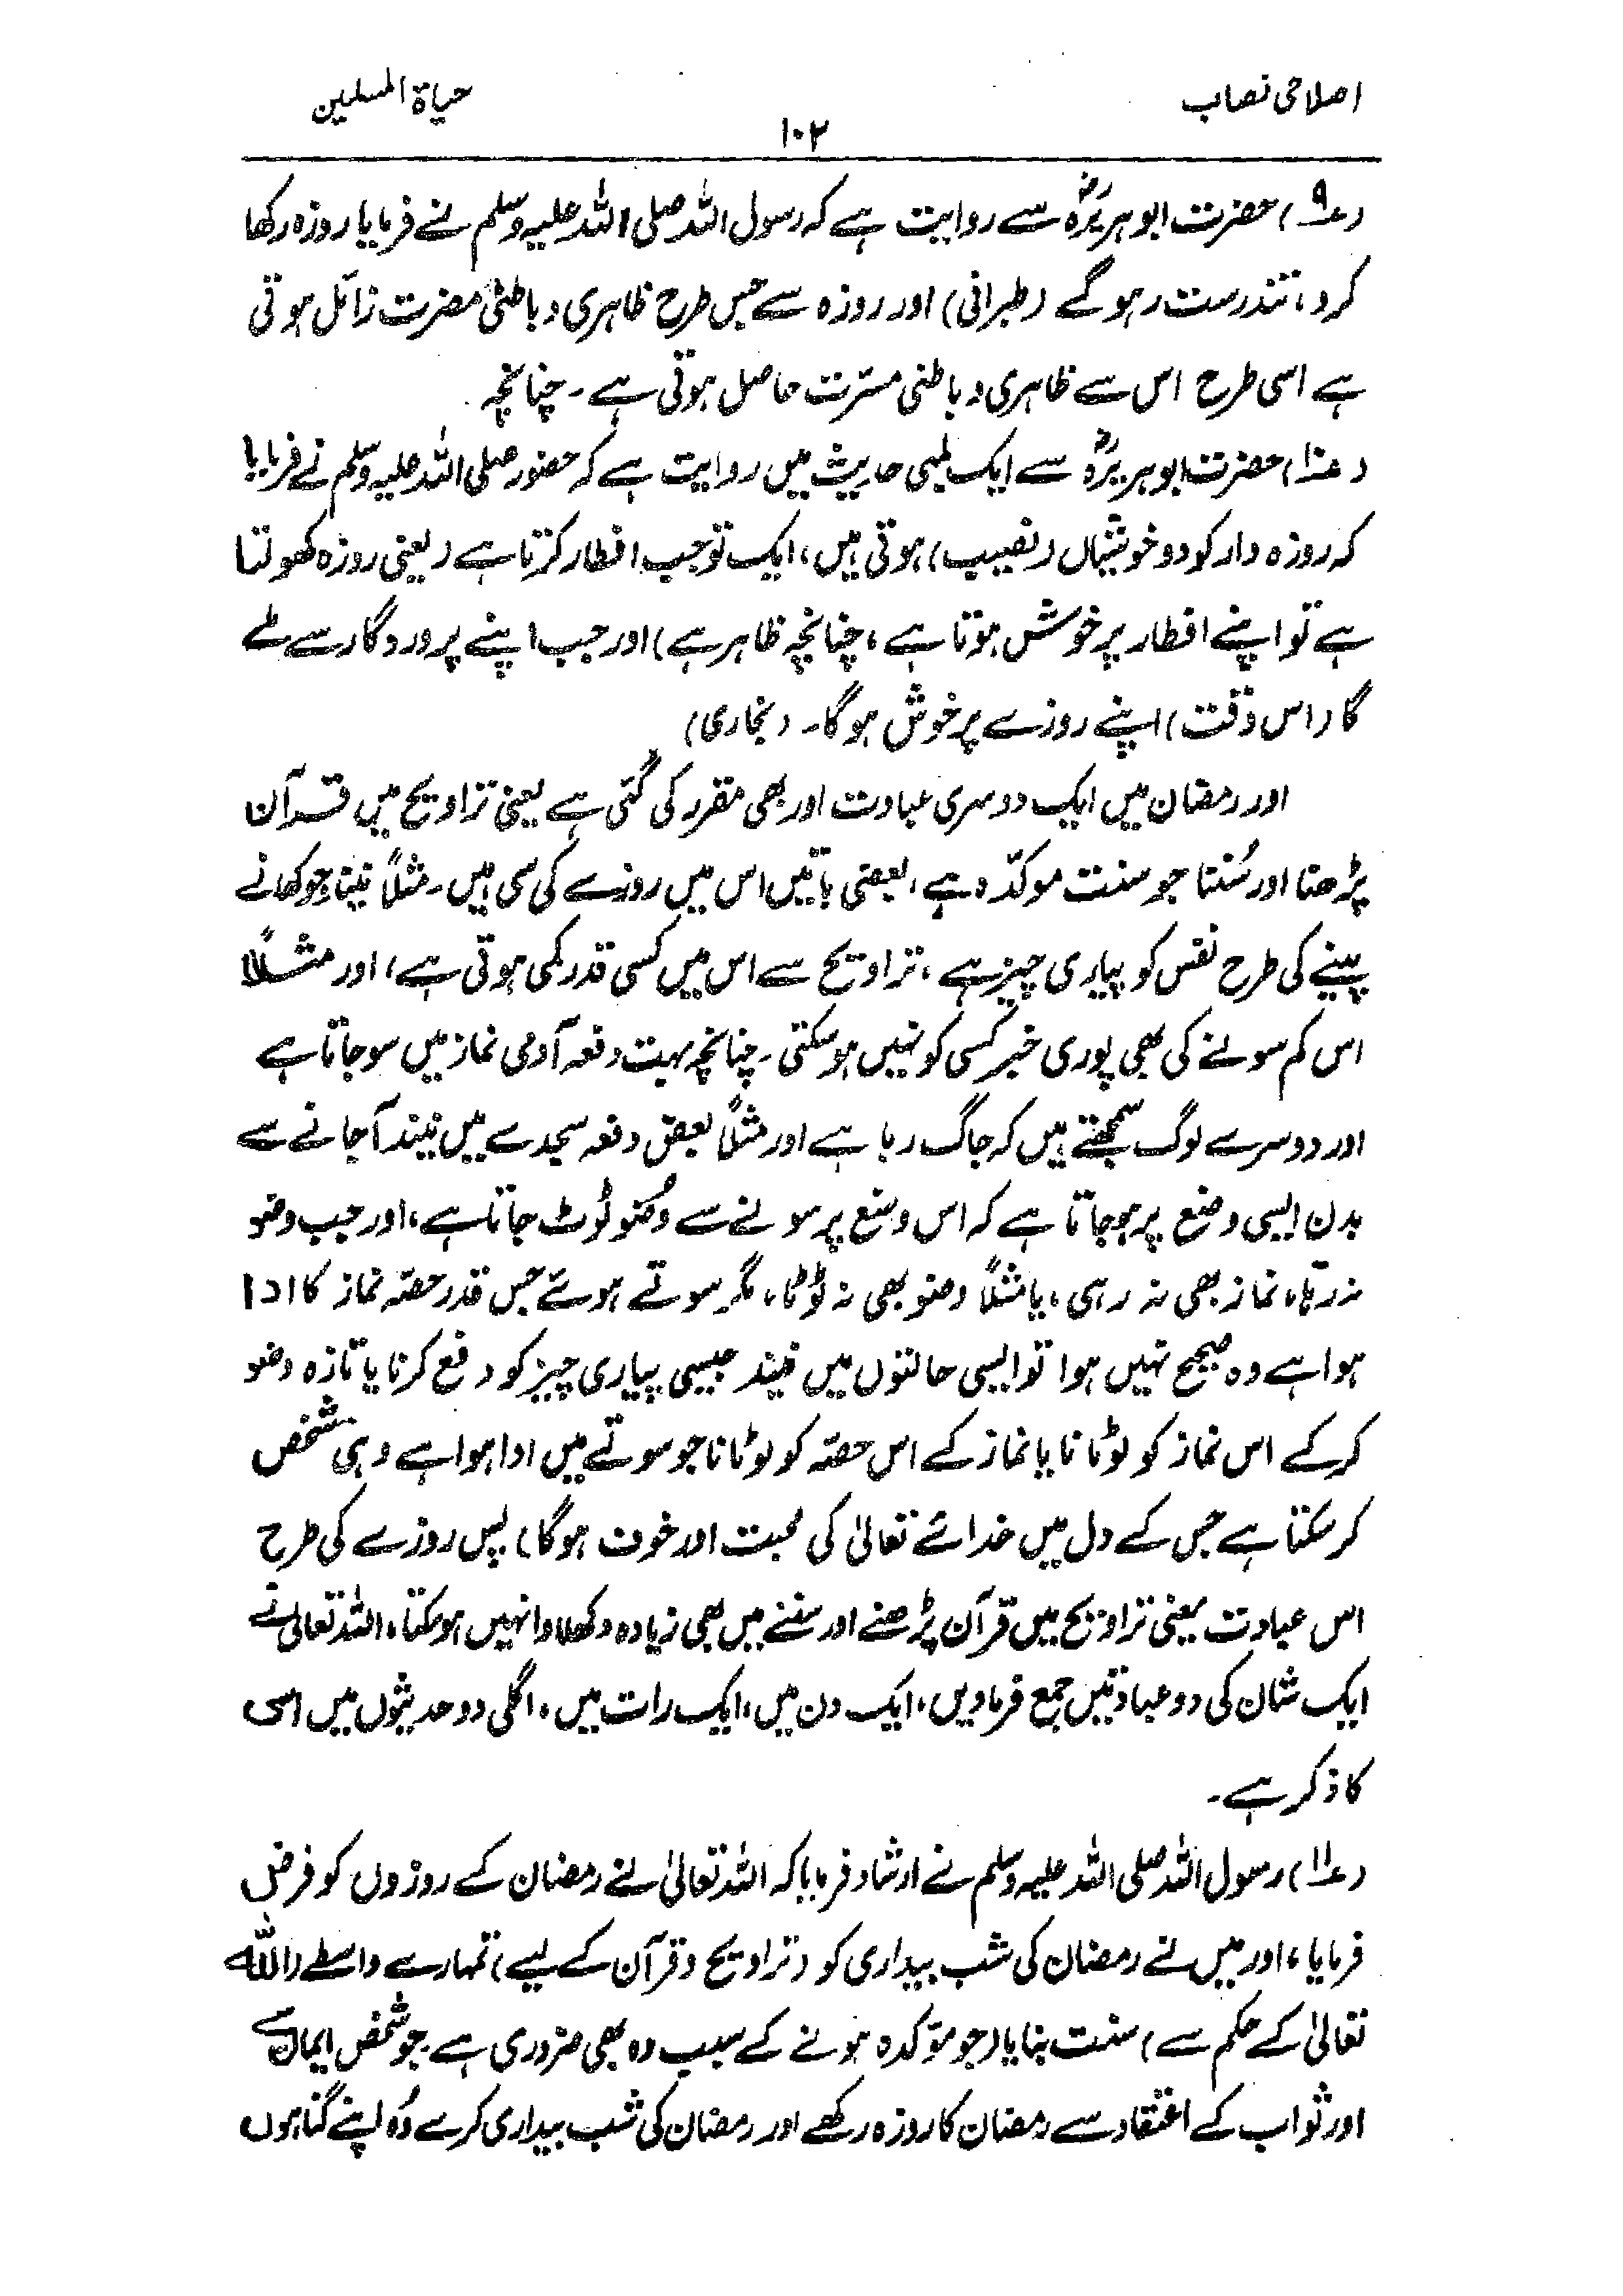 اصلاحی نصاب
حیاۃ المسلمین
۱۰۲
(۹) حضرت ابوہریرہؓ سے روایت ہے کہ رسول اللہ صلی اللہ علیہ وسلم نے فرمایا روزہ رکھا
کرو، تندرست رہو گے (طبرانی) اور روزہ سے جس طرح ظاہری و باطنی مضرت زائل ہوتی
ہے اسی طرح اس سے ظاہری و باطنی مسرّت حاصل ہوتی ہے۔ چنانچہ
(۱۰) حضرت ابوہریرہؓ سے ایک لمبی حدیث میں روایت ہے کہ حضور صلی اللہ علیہ وسلم نے فرمایا
کہ روزہ دار کو دو خوشیاں (نصیب) ہوتی ہیں، ایک تو جب افطار کرتا ہے (یعنی روزہ کھولتا
ہے تو اپنے افطار پر خوش ہوتا ہے، چنانچہ ظاہر ہے) اور جب اپنے پروردگار سے ملے
گا (اس وقت) اپنے روزے پر خوش ہوگا۔ (بخاری)
اور رمضان میں ایک دوسری عبادت اور بھی مقرر کی گئی ہے یعنی تراویح میں قرآن
پڑھنا اور سُننا جو سنت موکدّہ ہے، بعضی باتیں اس میں روزے کی سی ہیں۔ مثلاً نیند جو کھانے
پینے کی طرح نفس کو پیاری چیز ہے، تراویح سے اس میں کسی قدر کمی ہوتی ہے، اور مثلاً
اس کم سونے کی بھی پوری خبر کسی کو نہیں ہوسکتی۔ چنانچہ بہت دفعہ آدمی نماز میں سو جاتا ہے
اور دوسرے لوگ سمجھتے ہیں کہ جاگ رہا ہے اور مثلاً بعض دفعہ سجدے میں نیند آجانے سے
بدن ایسی وضع پر ہوجاتا ہے کہ اس وضع پر سونے سے وُضو ٹُوٹ جاتا ہے، اور جب وضو
نہ رہا، نماز بھی نہ رہی، یا مثلاً وضو بھی نہ ٹوٹا، مگر سوتے ہوئے جس قدر حصّہ نماز کا ادا
ہوا ہے وہ صحیح نہیں ہوا تو ایسی حالتوں میں نیند جیسی پیاری چیز کو دفع کرنا یا تازہ وضو
کرکے اس نماز کو لوٹانا یا نماز کے اس حصّہ کو لوٹانا جو سوتے میں ادا ہوا ہے وہی شخص
کرسکتا ہے جس کے دل میں خدائے تعالیٰ کی محبت اور خوف ہوگا) پس روزے کی طرح
اس عبادت یعنی تراویح میں قرآن پڑھنے اور سننے میں بھی زیادہ دکھلاوا نہیں ہوسکتا، اللہ تعالیٰ نے
ایک شان کی دو عبادتیں جمع فرمادیں، ایک دن میں، ایک رات میں، اگلی دو حدیثوں میں اسی
کا ذکر ہے۔
(۱۱) رسول اللہ صلی اللہ علیہ وسلم نے ارشاد فرمایا کہ اللہ تعالیٰ نے رمضان کے روزوں کو فرض
فرمایا، اور میں نے رمضان کی شب بیداری کو (تراویح و قرآن کے لیے) تمہارے واسطے (اللہ
تعالیٰ کے حکم سے) سنت بنایا (جو مؤکدہ ہونے کے سبب وہ بھی ضروری ہے۔ جو شخص ایمان سے
اور ثواب کے اعتقاد سے رمضان کا روزہ رکھے اور رمضان کی شب بیداری کرے وُہ اپنے گناہوں